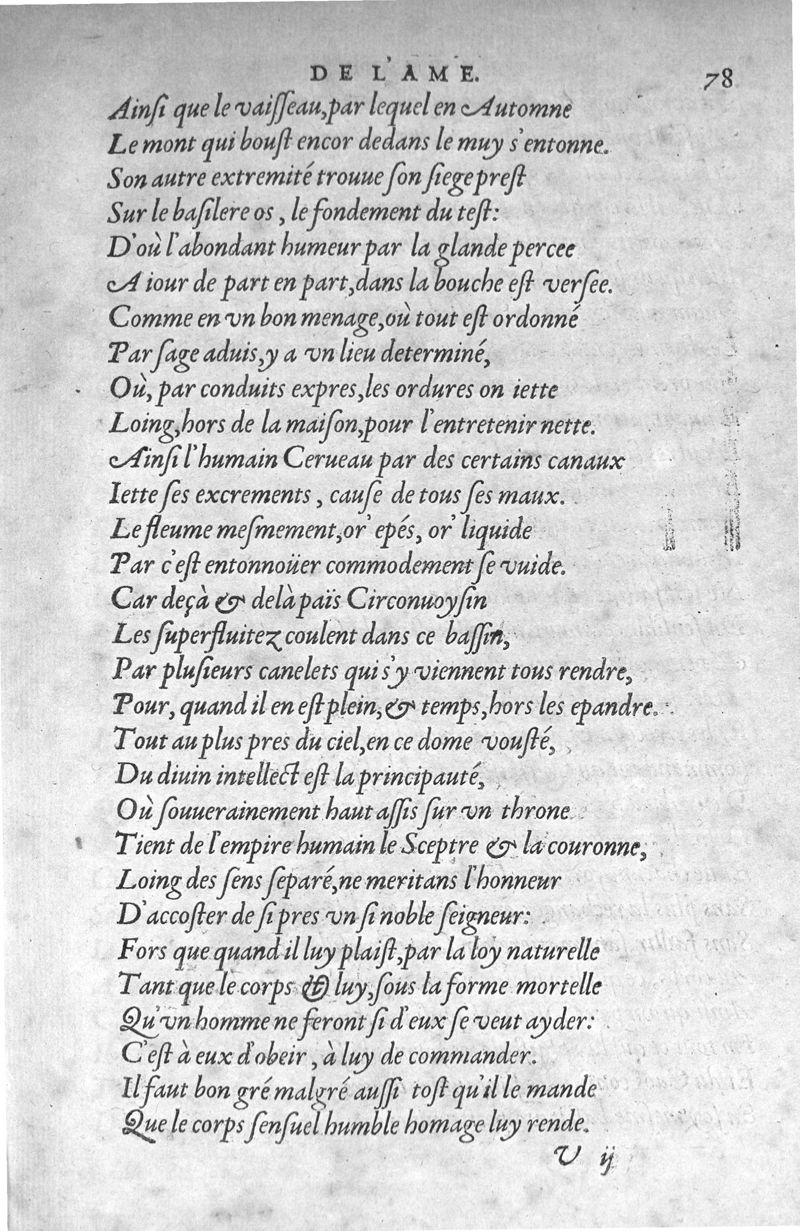 DE L'AME. 78
Ainſi que le vaiſſeau, par lequel en Automne
Le mont qui bouſt encor dedans le muy s'entonne.
Son autre extremité trouue ſon ſiege preſt
Sur le baſilere os, le fondement du teſt:
D'où l'abondant humeur par la glande percee
A iour de part en part, dans la bouche eſt verſee.
Comme en vn bon menage, où tout eſt ordonné
Par ſage aduis, y a vn lieu determiné,
Où, par conduits expres, les ordures on iette
Loing, hors de la maiſon, pour l'entretenir nette.
Ainſi l'humain Cerueau par des certains canaux
Iette ſes excrements, cauſe de tous ſes maux.
Le fleume meſmement, or' epés, or' liquide
Par c'eſt entonnoüer commodement ſe vuide.
Car deçà & delà païs Circonuoyſin
Les ſuperfluitez coulent dans ce baſſin,
Par pluſieurs canelets qui s'y viennent tous rendre,
Pour, quand il en eſt plein, & temps, hors les epandre.
Tout au plus pres du ciel, en ce dome vouſté,
Du diuin intellect eſt la principauté,
Où ſouuerainement haut aſſis ſur vn throne
Tient de l'empire humain le Sceptre & la couronne,
Loing des ſens ſeparé, ne meritans l'honneur
D'accoſter de ſi pres vn ſi noble ſeigneur:
Fors que quand il luy plaiſt, par la loy naturelle
Tant que le corps & luy, ſous la forme mortelle
Qu'vn homme ne feront ſi d'eux ſe veut ayder:
C'eſt à eux d'obeir, à luy de commander.
Il faut bon gré malgré auſſi toſt qu'il le mande
Que le corps ſenſuel humble homage luy rende.
V ij